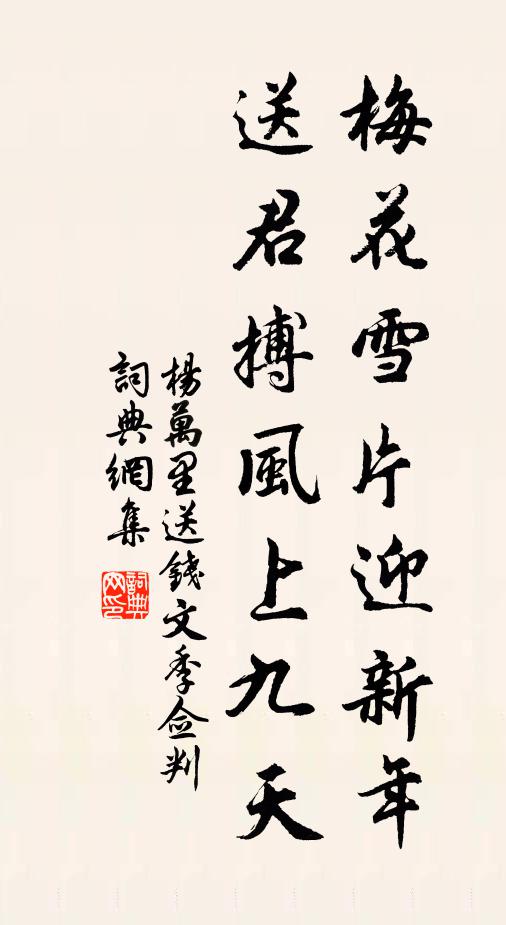 梅花雪片迎新年
送君搏風上九天
楊萬里送錢文季僉判
詞典網集
詞典網印